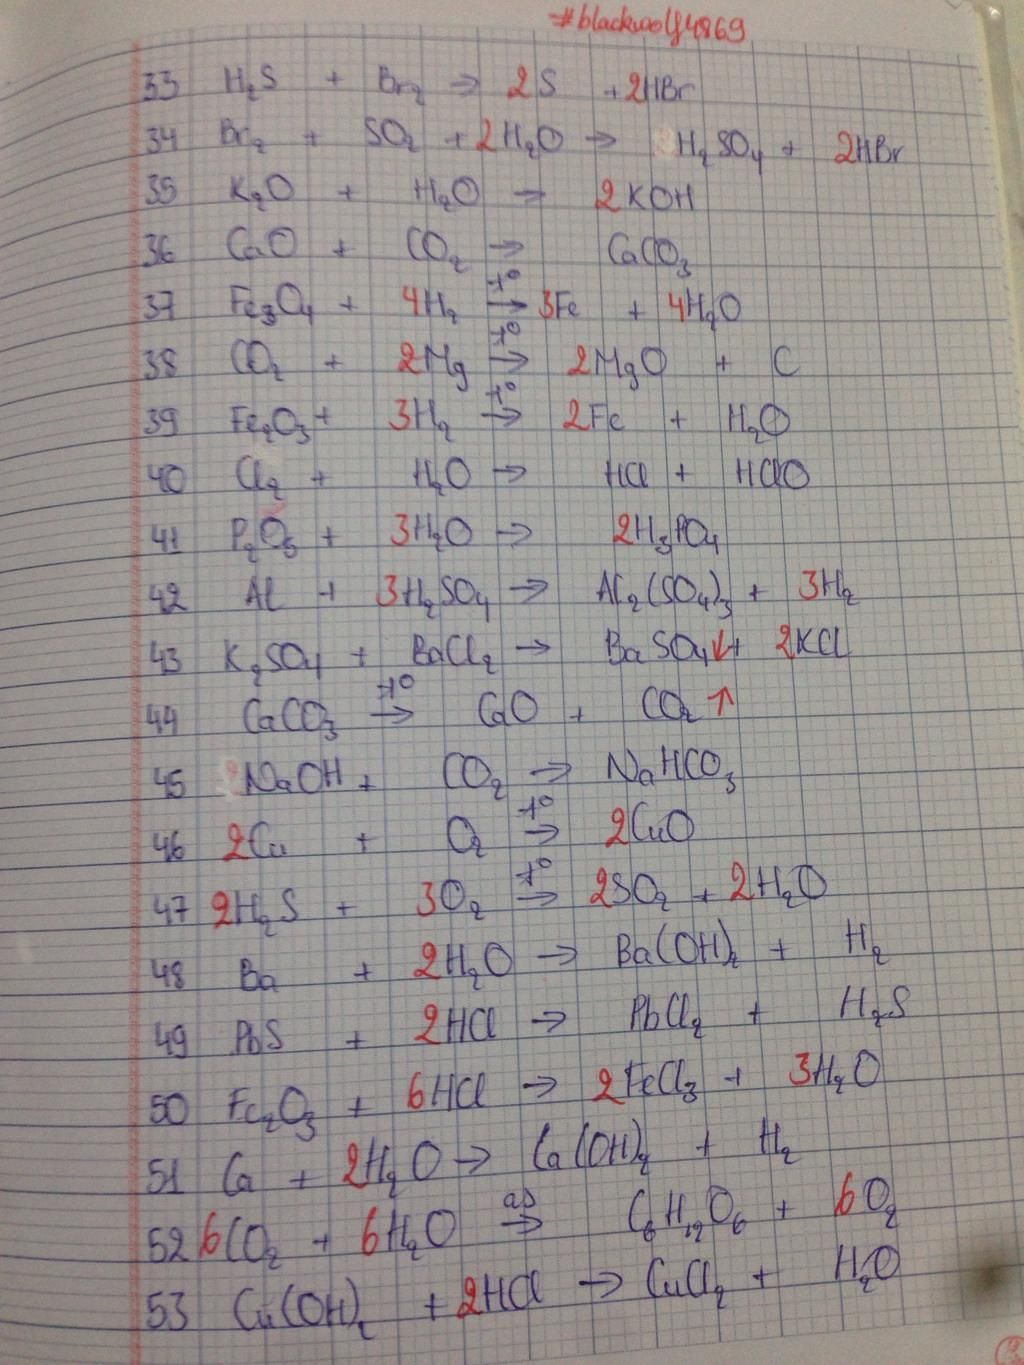 #blackwolf4869
33 H₂S + Br₂ → 2S + 2HBr
34 Br₂ + SO₂ + 2H₂O → H₂SO₄ + 2HBr
35 K₂O + H₂O → 2KOH
36 CaO + CO₂ → CaCO₃
37 Fe₃O₄ + 4H₂ t°→ 3Fe + 4H₂O
38 CO₂ + 2Mg t°→ 2MgO + C
39 Fe₂O₃ + 3H₂ t°→ 2Fe + H₂O
40 Cl₂ + H₂O → HCl + HClO
41 P₂O₅ + 3H₂O → 2H₃PO₄
42 Al + 3H₂SO₄ → Al₂(SO₄)₃ + 3H₂
43 K₂SO₄ + BaCl₂ → BaSO₄↓ + 2KCl
44 CaCO₃ t°→ CaO + CO₂ ↑
45 NaOH + CO₂ → NaHCO₃
46 2Cu + O₂ t°→ 2CuO
47 2H₂S + 3O₂ t°→ 2SO₂ + 2H₂O
48 Ba + 2H₂O → Ba(OH)₂ + H₂
49 PbS + 2HCl → PbCl₂ + H₂S
50 Fe₂O₃ + 6HCl → 2FeCl₃ + 3H₂O
51 Ca + 2H₂O → Ca(OH)₂ + H₂
52 6CO₂ + 6H₂O as→ C₆H₁₂O₆ + 6O₂
53 Cu(OH)₂ + 2HCl → CuCl₂ + H₂O